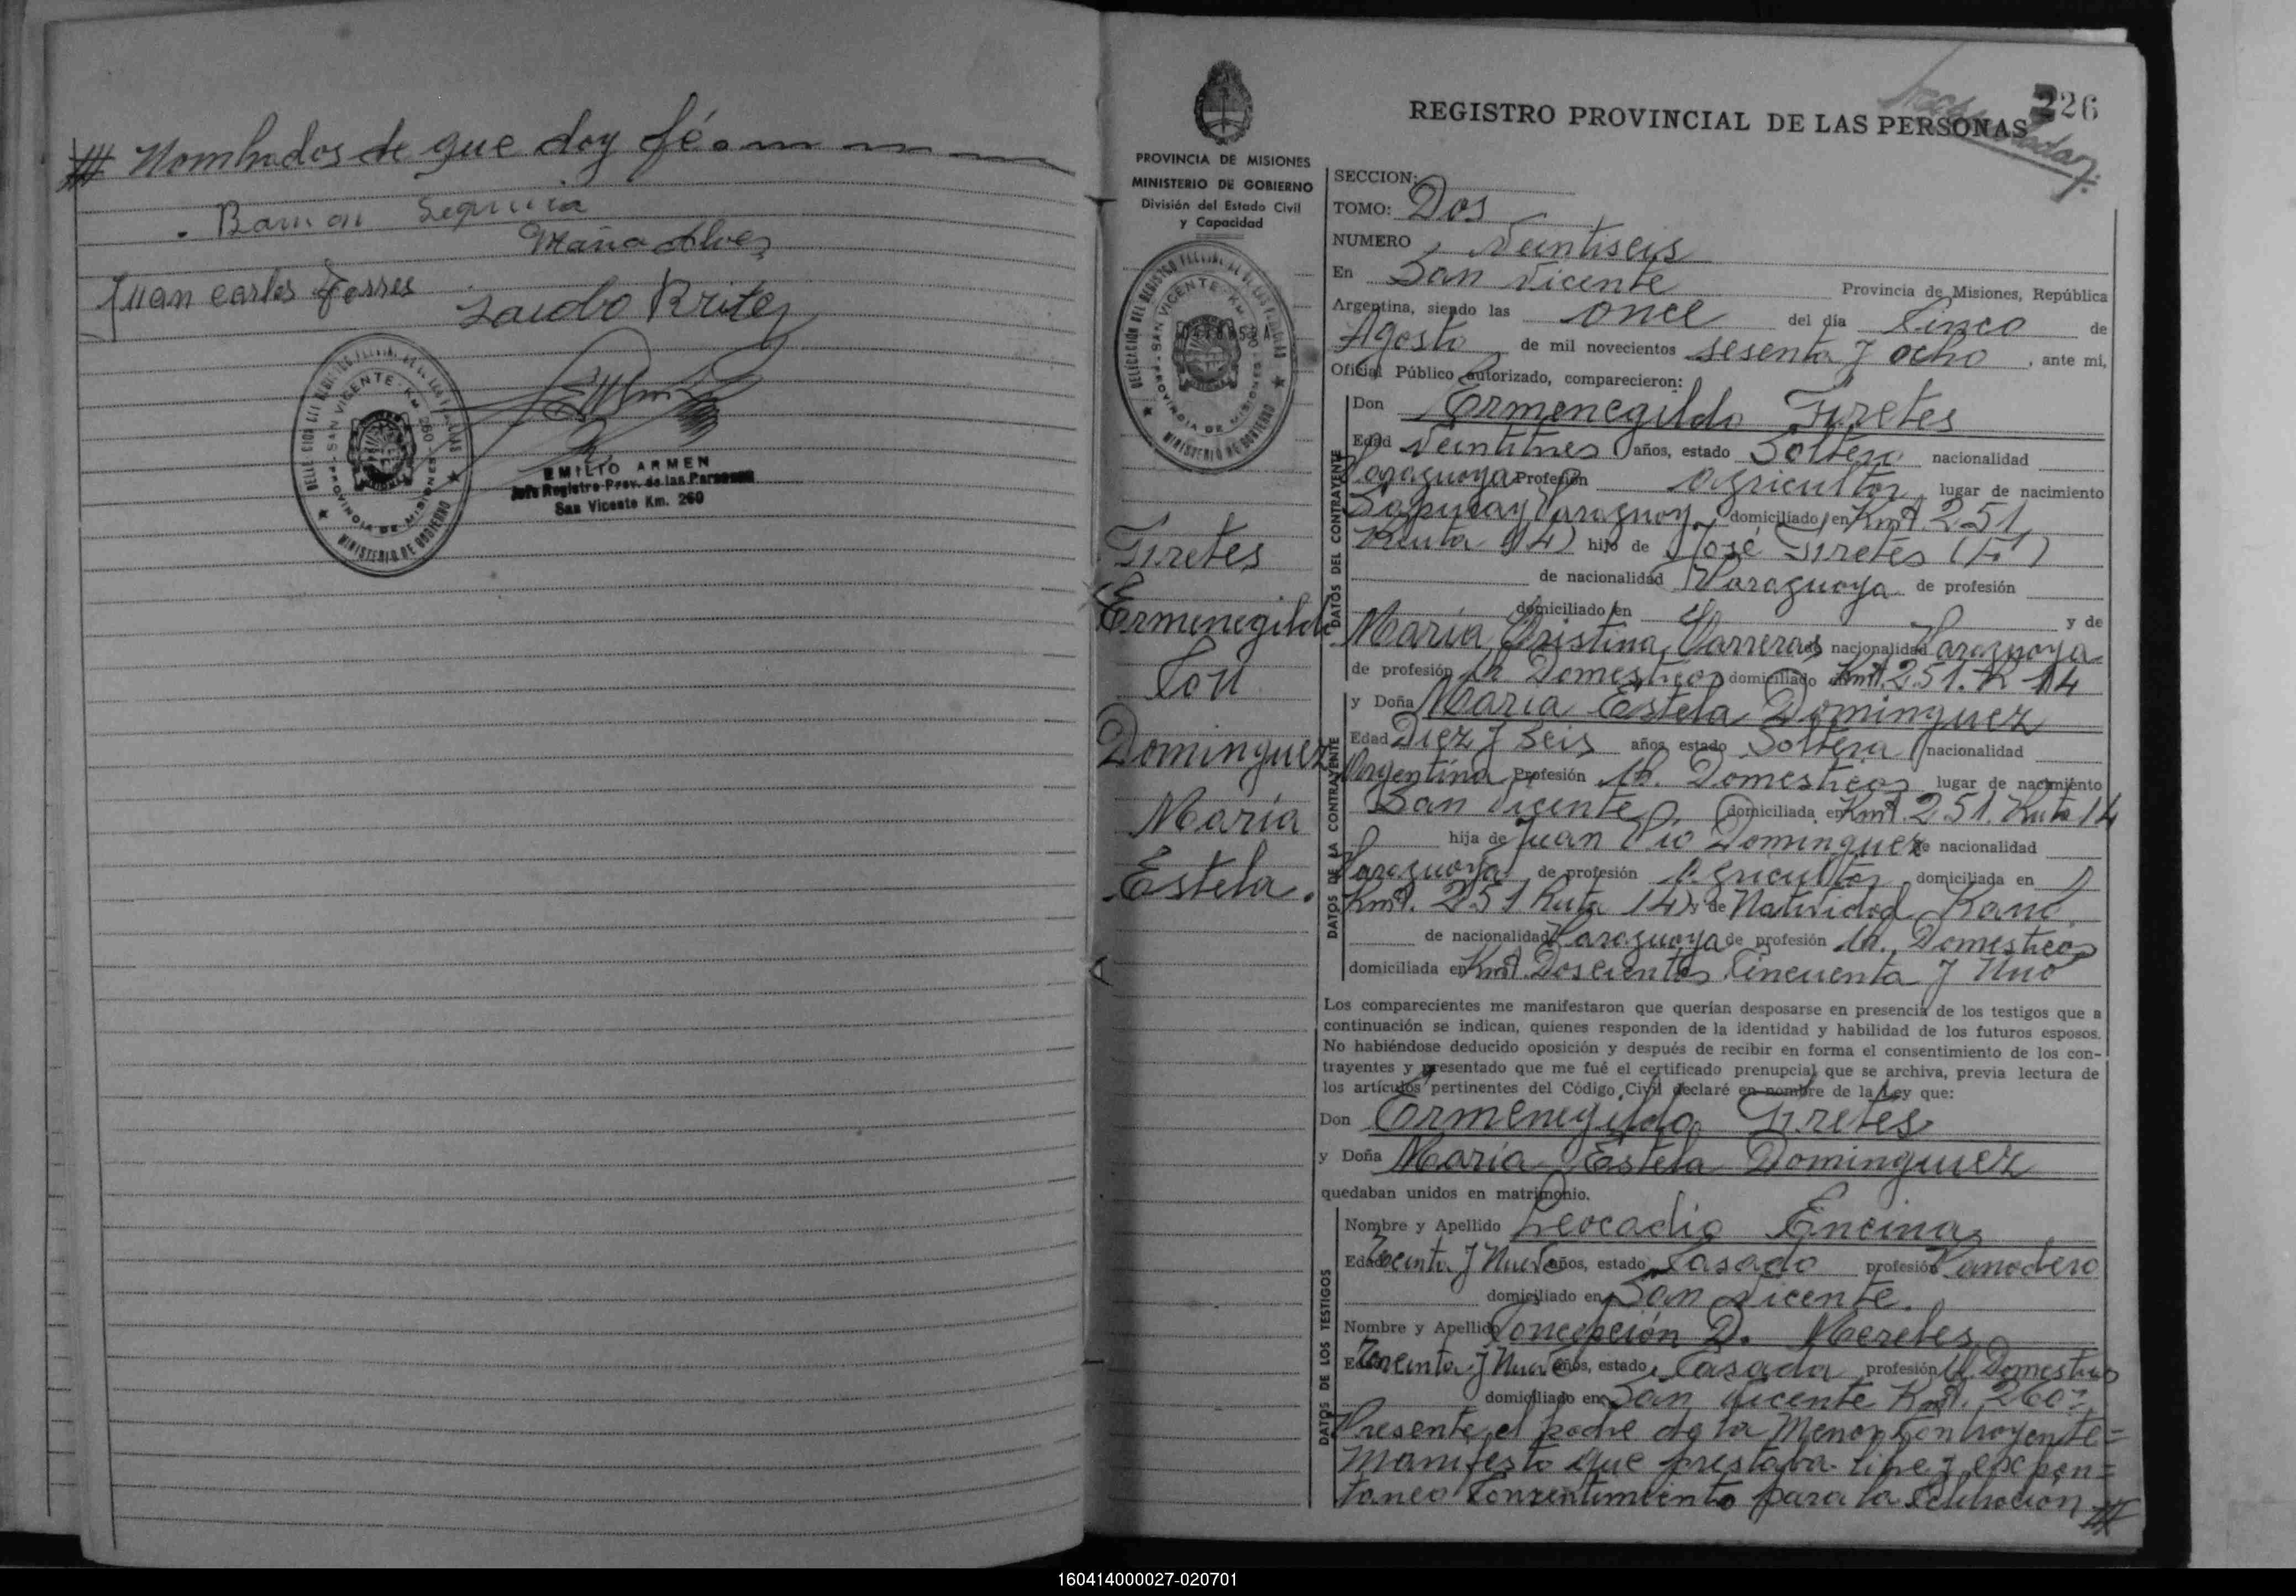 # Nombrados de que doy fé.
Juan Carlos Torres
Maria Alvez
EMILIO ARMEN
Jefe Registro Prov. de las Personas
San Vicente Km. 260
PROVINCIA DE MISIONES
MINISTERIO DE GOBIERNO
División del Estado Civil
y Capacidad
Firetes
Ermenegildo
Con
Dominguez
María
Estela.
226
REGISTRO PROVINCIAL DE LAS PERSONAS
SECCION:
TOMO: Dos
NUMERO Veintiseis
En San Vicente Provincia de Misiones, República
Argentina, siendo las once del día Cinco de
Agosto de mil novecientos sesenta y ocho, ante mí,
Oficial Público autorizado, comparecieron:
DATOS DEL CONTRAYENTE
Don Ermenegildo Firetes
Edad Veintitres años, estado Soltero nacionalidad
Paraguaya Profesión Agricultor lugar de nacimiento
Sapucay Paraguay domiciliado en Kmt. 251
Ruta 14) hijo de José Firetes (F)
de nacionalidad Paraguaya de profesión
domiciliado en y de
María Cristina Carreras nacionalidad Paraguaya
de profesión Q. Domesticos domiciliado Kmt. 251. R 14
DATOS DE LA CONTRAYENTE
y Doña María Estela Dominguez
Edad Diez y Seis años, estado Soltera nacionalidad
Argentina Profesión Q. Domesticos lugar de nacimiento
San Vicente domiciliada en Kmt. 251. Ruta 14
hija de Juan Pio Dominguez de nacionalidad
Paraguaya de profesión Agricultor domiciliada en
Kmt. 251 Ruta 14) y de Natividad
de nacionalidad Paraguaya de profesión Q. Domesticos
domiciliada en Kmt. Doscientos Cincuenta y Uno
Los comparecientes me manifestaron que querían desposarse en presencia de los testigos que a
continuación se indican, quienes responden de la identidad y habilidad de los futuros esposos.
No habiéndose deducido oposición y después de recibir en forma el consentimiento de los con-
trayentes y presentado que me fué el certificado prenupcial que se archiva, previa lectura de
los artículos pertinentes del Código Civil declaré en nombre de la Ley que:
Don Ermenegildo Firetes
y Doña María Estela Dominguez
quedaban unidos en matrimonio.
DATOS DE LOS TESTIGOS
Nombre y Apellido Leocadio Encina
Edad Treinta y Nueve años, estado Casado profesión Panadero
domiciliado en San Vicente.
Nombre y Apellido Concepción D. Mereles
Edad Treinta y Nueve años, estado Casada profesión Q. Domesticos
domiciliado en San Vicente Kmt. 260=
Presente el padre de la Menor Contrayente=
Manifesto que prestaba libre y expon=
taneo Consentimiento para la Celebración #
160414000027-020701